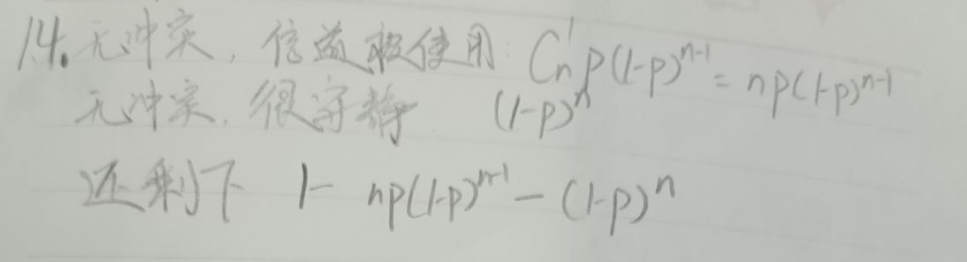 14. 无冲突，信道被使用： C_n^1 p(1-p)^{n-1} = np(1-p)^{n-1}
无冲突，很安静 (1-p)^n
还剩下 1- np(1-p)^{n-1} - (1-p)^n